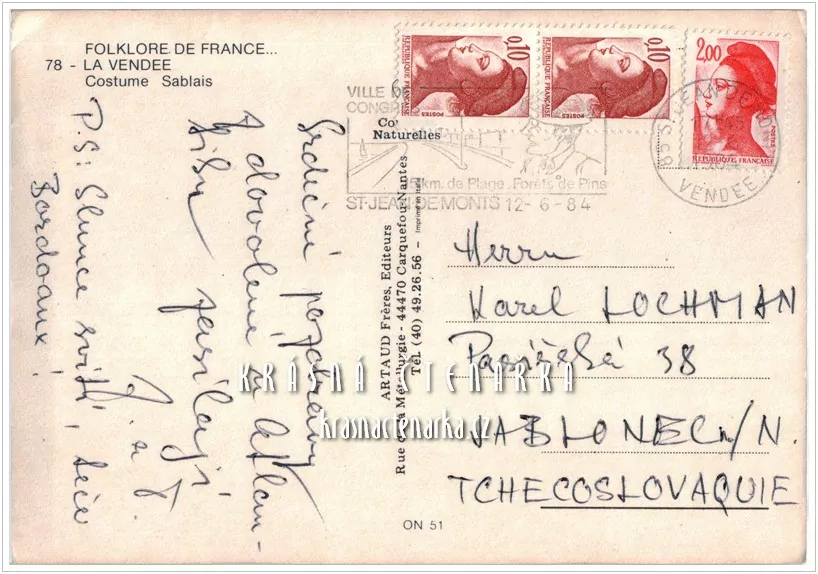 FOLKLORE DE FRANCE...
78 - LA VENDEE
Costume Sablais
0,10
REPUBLIQUE FRANÇAISE
POSTES
0,10
REPUBLIQUE FRANÇAISE
POSTES
2,00
POSTES
REPUBLIQUE FRANÇAISE
VILLE DE
CONGRÈ
Co
Naturelles
km. de Plage. Forêts de Pins
ST-JEAN-DE-MONTS 12-6-84
VENDEE
Srdečné pozdravy
z dovolené u Atlan-
tiku zasílají
J. a J.
P.S: Slunce svítí, teče
Bordoaux!
ARTAUD Frères, Editeurs
Rue de la Métallurgie - 44470 Carquefou-Nantes
Tél. (40) 49.26.56 - Imprimé en Italie
Herrn
Karel LOCHMAN
Pasířská 38
JABLONEC n/N.
TCHECOSLOVAQUIE
KRÁSNÁ ČTENÁRKA
krasnactenarka.cz
ON 51